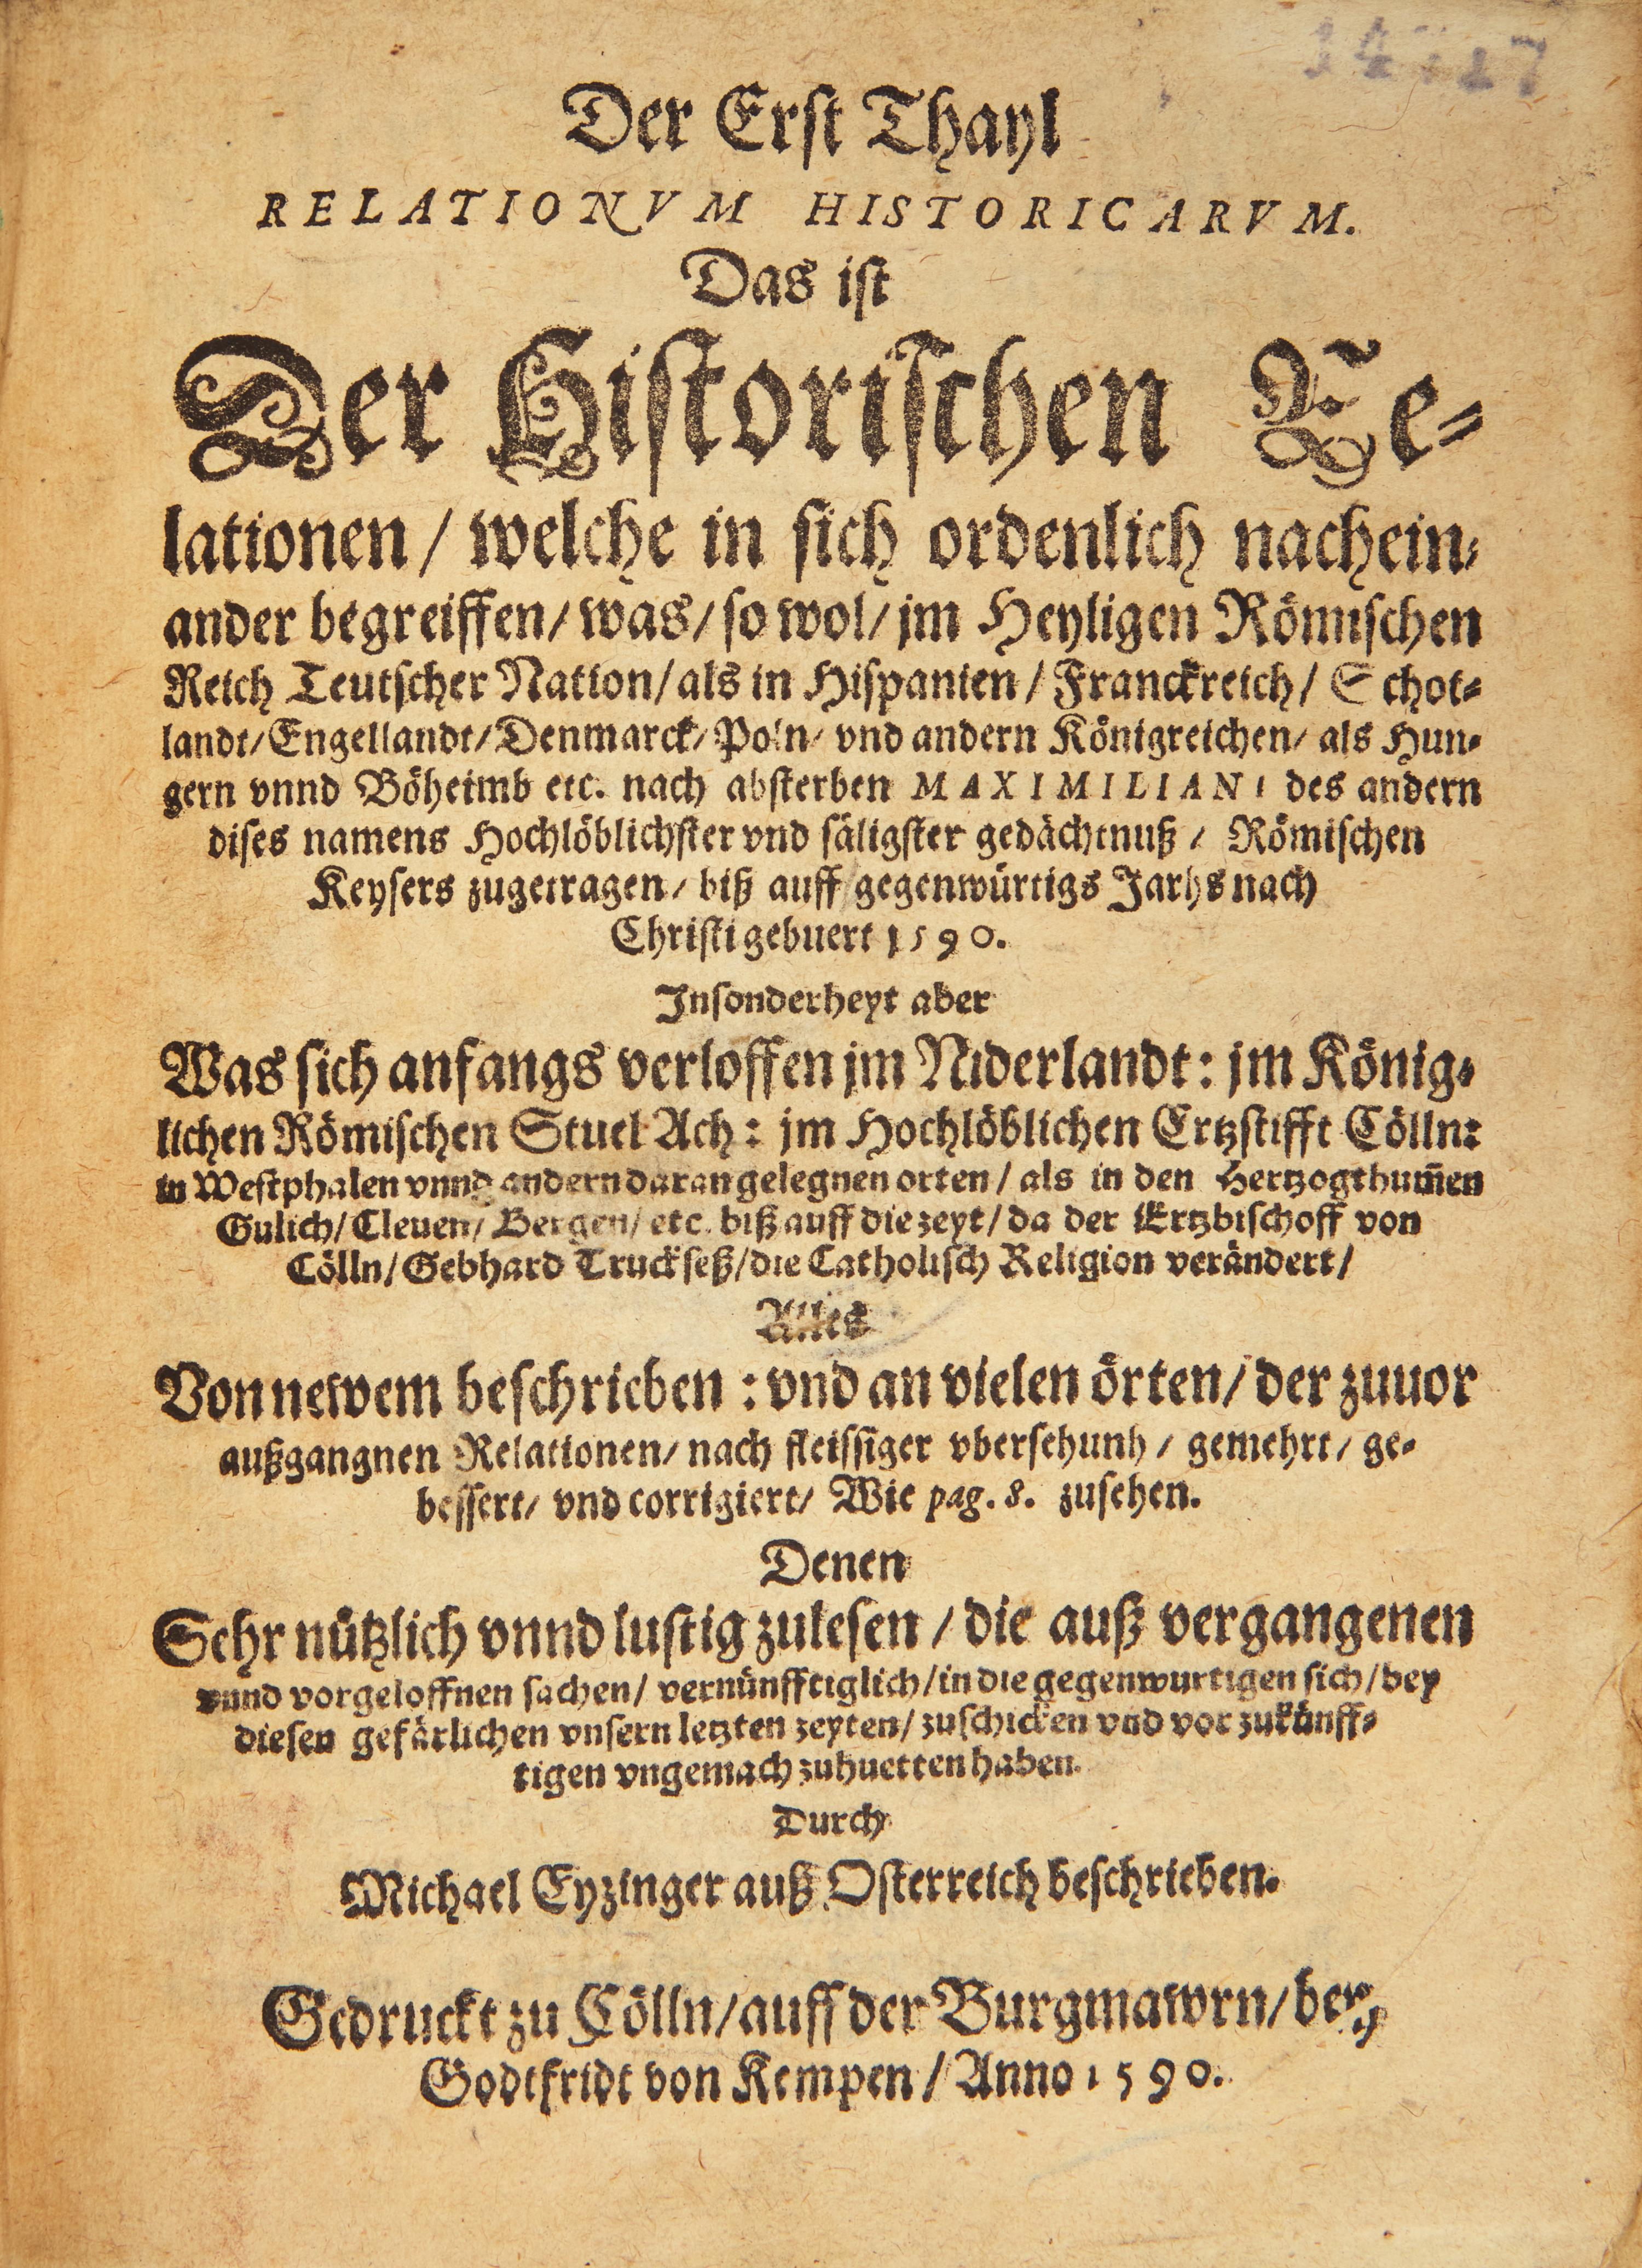 Der Erst Thayl
RELATIONVM HISTORICARVM.
Das ist
Der Historischen Re-
lationen / welche in sich ordenlich nachein-
ander begreiffen/ was/ so wol/ jm Heyligen Römischen
Reich Teutscher Nation/ als in Hispanien / Franckreich/ Schot-
landt/ Engellandt/ Denmarck/ Poln/ vnd andern Königreichen/ als Hun-
gern vnnd Böheimb etc. nach absterben MAXIMILIANI des andern
dises namens Hochlöblichster vnd säligster gedächtnuß / Römischen
Keysers zugetragen/ biß auff gegenwürtigs Jarhs nach
Christi gebuert 1590.
Insonderheyt aber
Was sich anfangs verloffen jm Niderlandt: jm König-
lichen Römischen Stuel Ach: jm Hochlöblichen Ertzstifft Cölln:
in Westphalen vnnd andern daran gelegnen orten / als in den Hertzogthum̃en
Gulich/ Cleuen/ Bergen/ etc. biß auff die zeyt/ da der Ertzbischoff von
Cölln/ Gebhard Truckseß/ die Catholisch Religion verändert/
Alles
Von newem beschrieben : vnd an vielen örten/ der zuuor
außgangnen Relationen/ nach fleissiger vbersehunh / gemehrt/ ge-
bessert/ vnd corrigiert/ Wie pag. 8. zusehen.
Denen
Sehr nützlich vnnd lustig zulesen / die auß vergangenen
vnnd vorgeloffnen sachen/ vernünfftiglich/ in die gegenwurtigen sich/ bey
diesen gefärlichen vnsern letzten zeyten/ zuschicken vnd vor zukünff-
tigen vngemach zuhuetten haben.
Durch
Michael Eyzinger auß Osterreich beschrieben.
Gedruckt zu Cölln/ auff der Burgmawrn/ bey
Godtfridt von Kempen / Anno 1590.